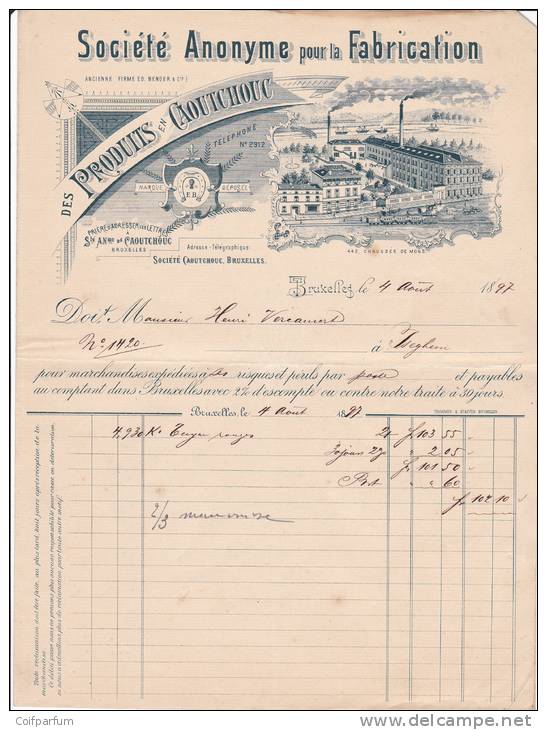 Société Anonyme pour la Fabrication
ANCIENNE FIRME ED. BENDER & Cº
DES PRODUITS EN CAOUTCHOUC
TÉLÉPHONE
Nº 2912
MARQUE DÉPOSÉE
E.B.
PRIÈRE D'ADRESSER LES LETTRES
À
Sté ANme DE CAOUTCHOUC
BRUXELLES
Adresse Télégraphique:
SOCIÉTÉ CAOUTCHOUC, BRUXELLES.
CHAUSSÉE DE MONS
Bruxelles, le 4 Août 1897
Doit Monsieur Henri Vercamert
Nº 1420 à Iseghem
pour marchandises expédiées à ses risques et périls par poste et payables
au comptant dans Bruxelles avec 2% d'escompte ou contre notre traite à 30 jours.
Bruxelles, le 4 Août 1897
4,930 Kº rouges 21 f 103 55
30 jours 2% " 2 05
f 101 50
Port " 60
f 102 10
2/3
Toute réclamation doit être faite, au plus tard, huit jours après réception de la marchandise.
Ce délai passé nous ne pouvons plus nous en responsabiliser
Coifparfum
delcampe.net